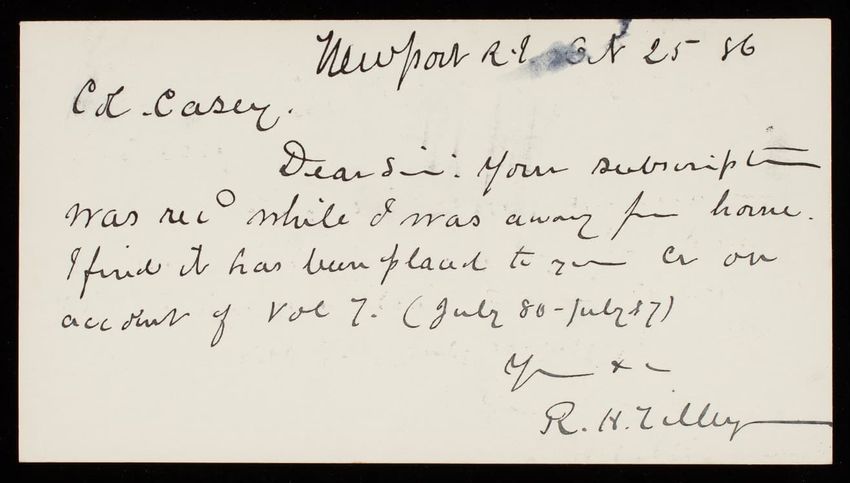 Newport R.I. Oct 25 86
Col. Casey.
Dear Sir: Your subscription
was recd while I was away from home.
I find it has been placed to your Cr on
account of Vol 7. (July 86 - July 87)
Yrs &c
R. H. Tilley